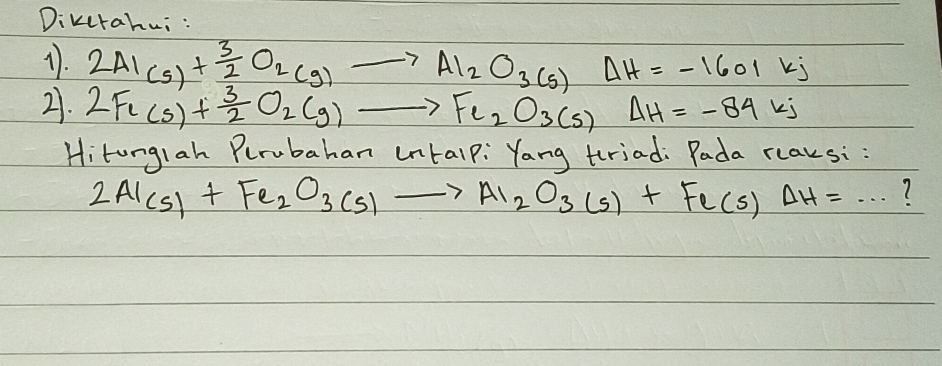 Diketahui :
1). 2Al(s) + 3/2 O₂(g) ⟶ Al₂O₃(s) ΔH = -1601 kj
2). 2Fe(s) + 3/2 O₂(g) ⟶ Fe₂O₃(s) ΔH = -84 kj
Hitunglah Perubahan entalpi Yang terjadi Pada reaksi :
2Al(s) + Fe₂O₃(s) ⟶ Al₂O₃(s) + Fe(s) ΔH = ... ?